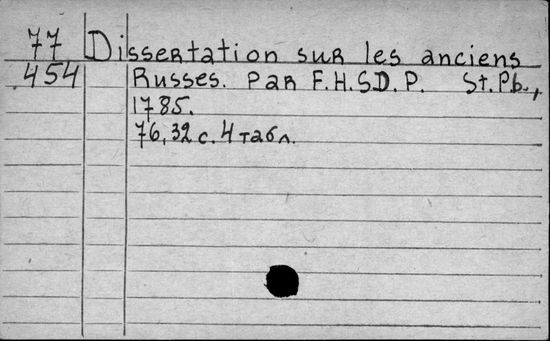 77 Dissertation sur les anciens
454 Russes. Par F.H.S.D.P. St.Pb.,
1785.
76,32 с. 4 табл.